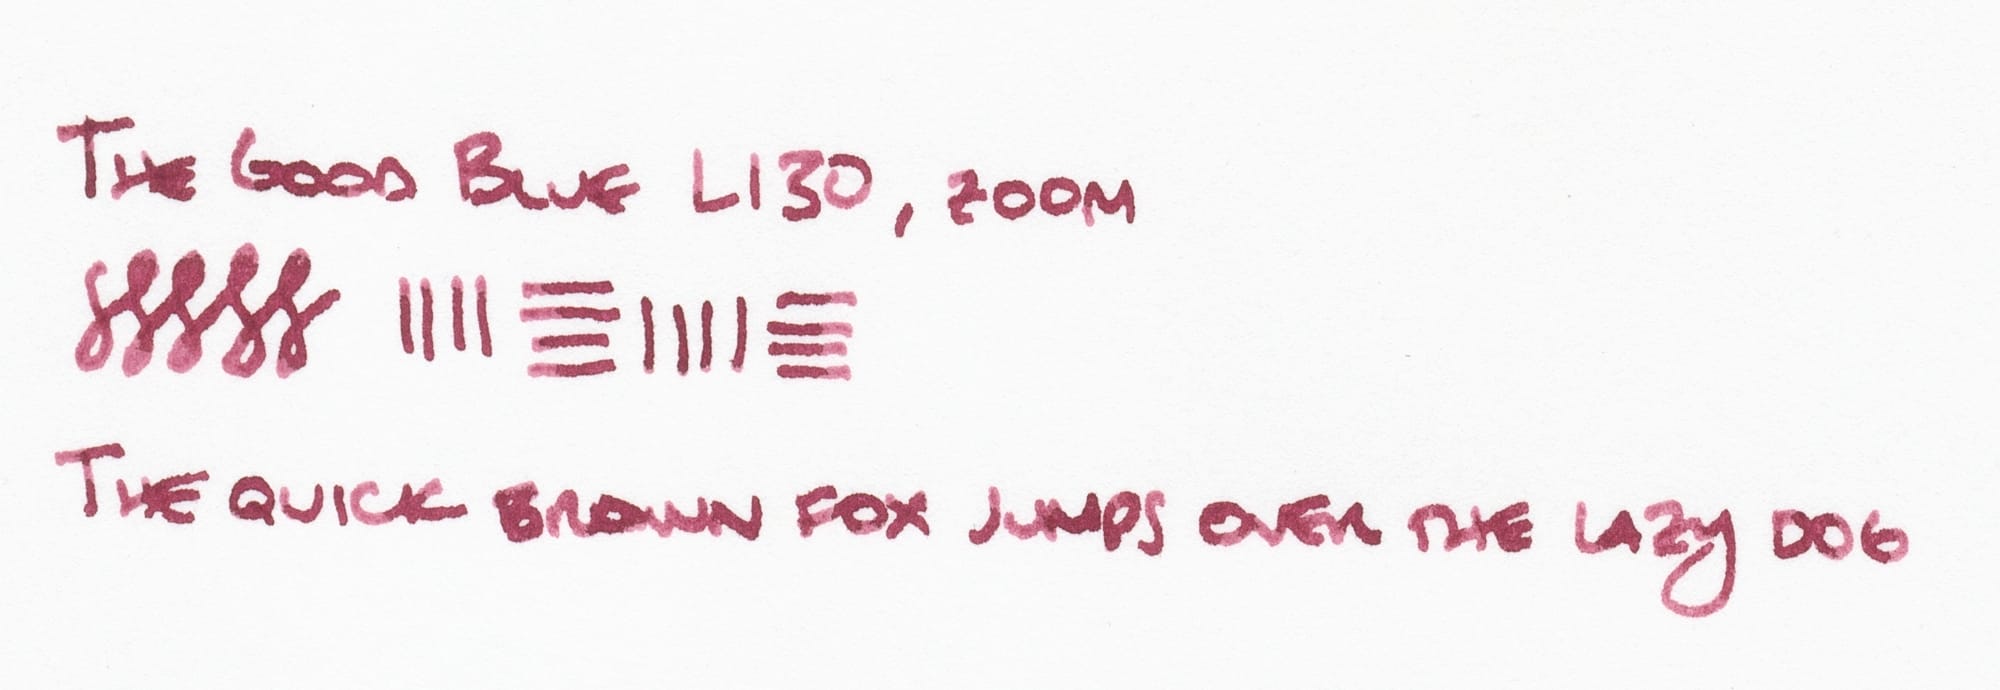 The Good Blue L130, zoom
The quick brown fox jumps over the lazy dog